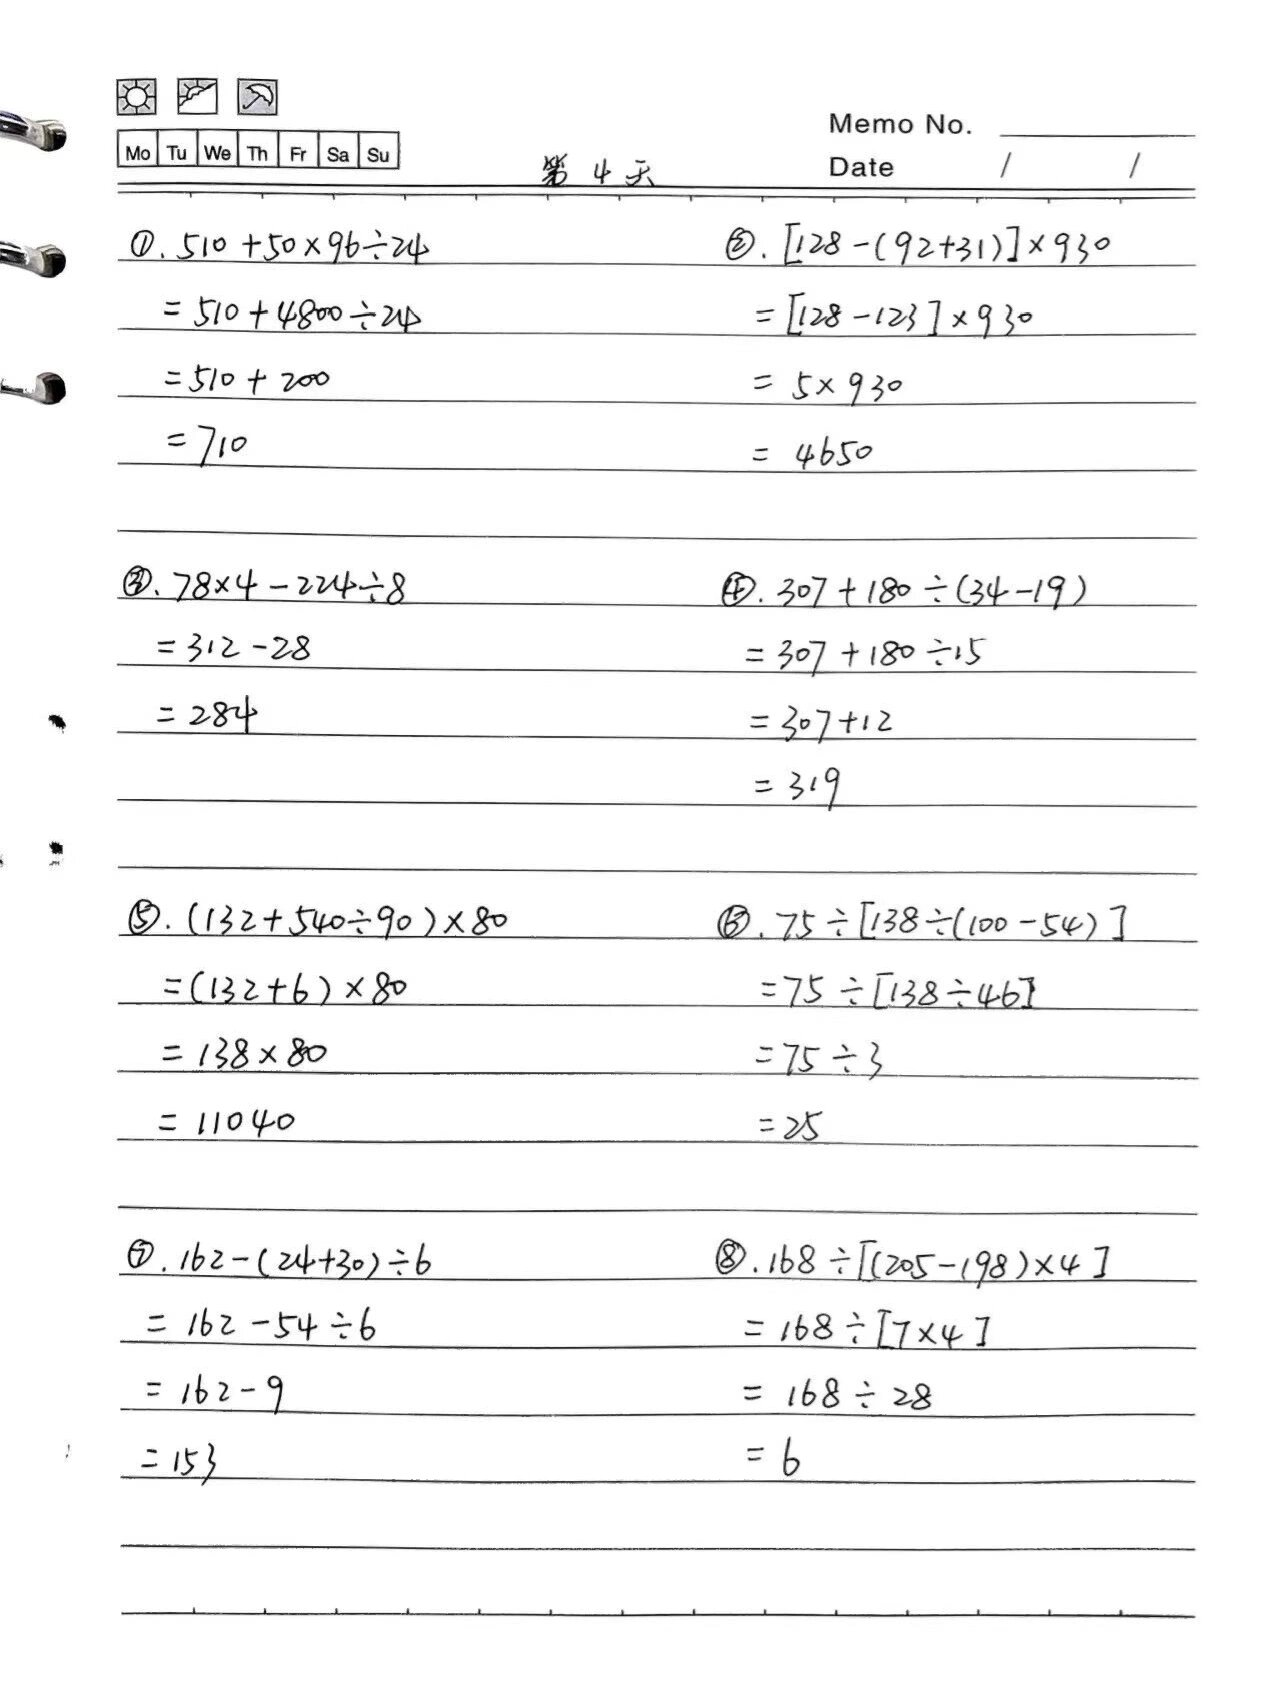 Memo No.
Mo Tu We Th Fr Sa Su
Date / /
第4天
①. 510+50×96÷24
=510+4800÷24
=510+200
=710
②. [128-(92+31)]×930
=[128-123]×930
=5×930
=4650
③. 78×4-224÷8
=312-28
=284
④. 307+180÷(34-19)
=307+180÷15
=307+12
=319
⑤. (132+540÷90)×80
=(132+6)×80
=138×80
=11040
⑥. 75÷[138÷(100-54)]
=75÷[138÷46]
=75÷3
=25
⑦. 162-(24+30)÷6
=162-54÷6
=162-9
=153
⑧. 168÷[(205-198)×4]
=168÷[7×4]
=168÷28
=6